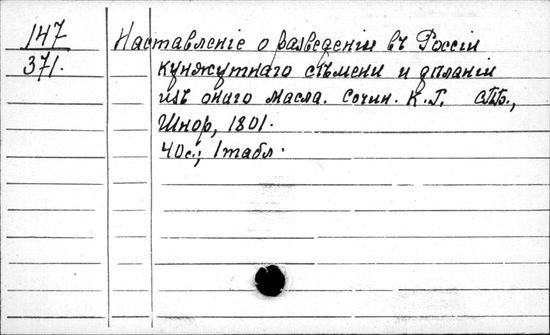 147
371.
Наставленіе о разведеніи въ Россіи
кунжутнаго сѣмени и дѣланіи
изъ онаго масла. Сочин. К.Г. СПБ.,
Шнор, 1801.
40с.; 1табл.